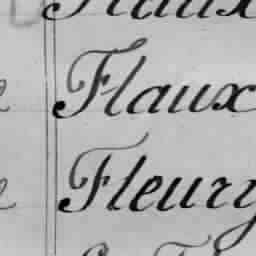 Flaux
Fleury